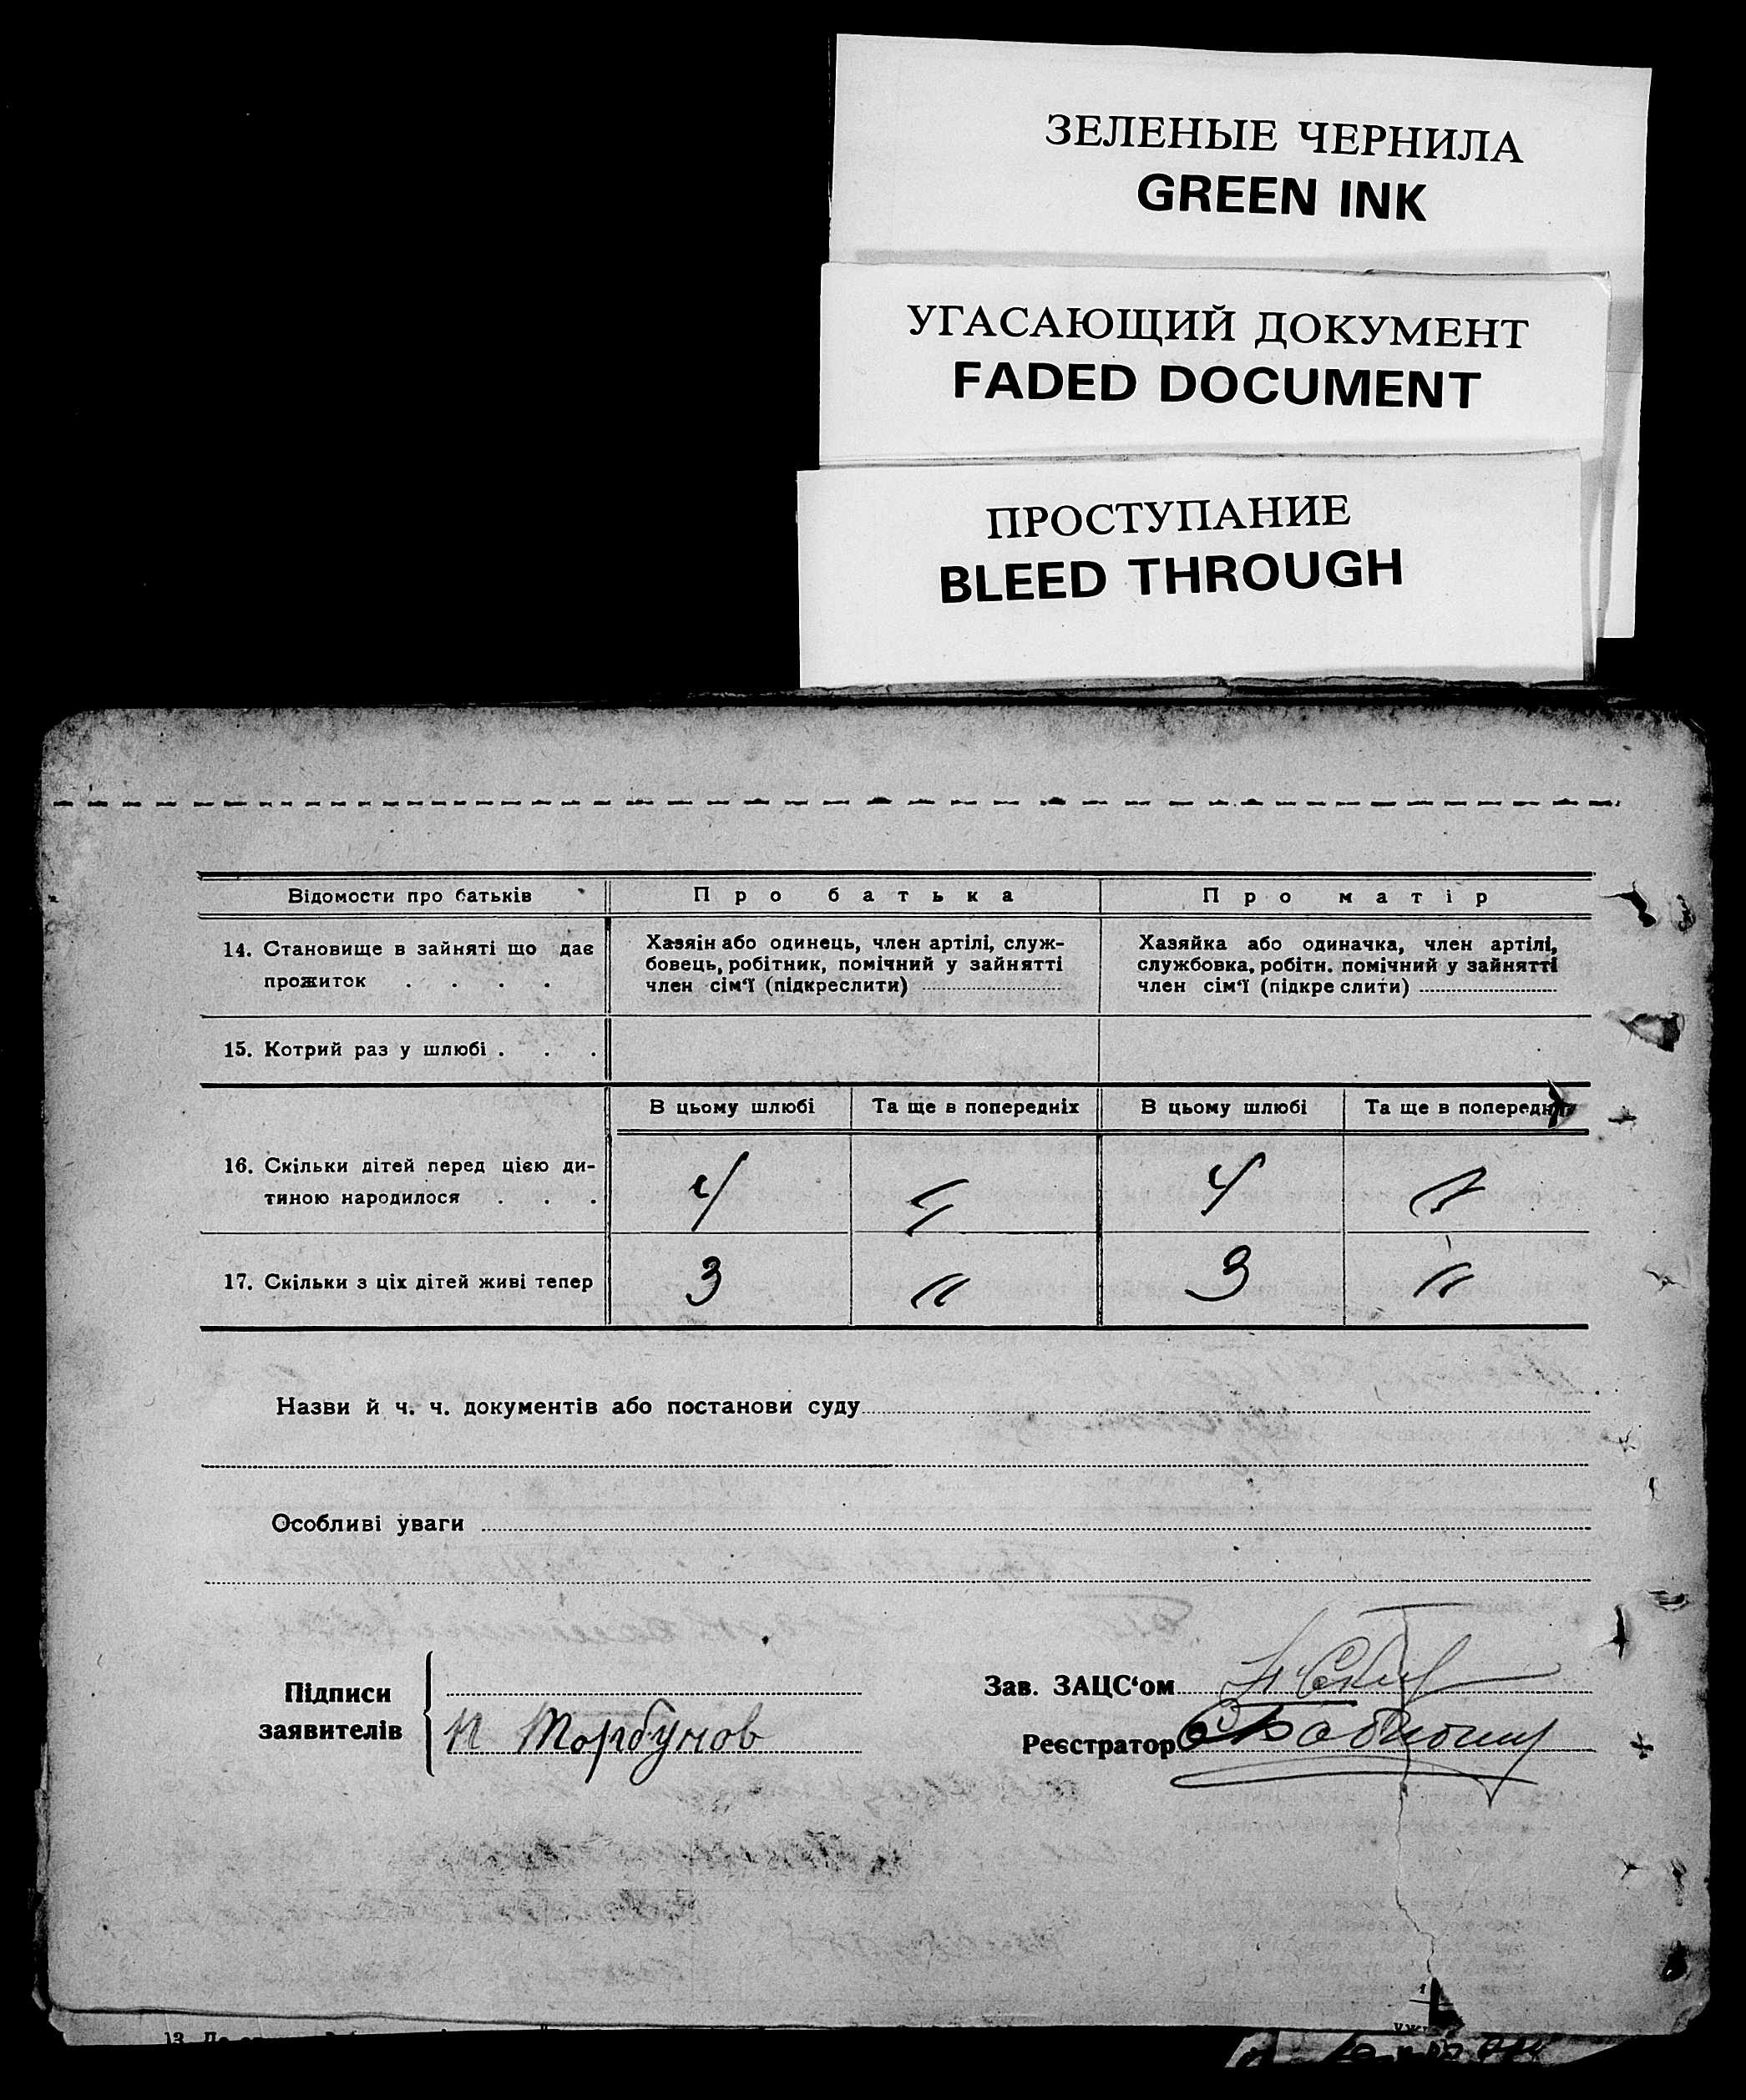 ЗЕЛЕНЫЕ ЧЕРНИЛА
GREEN INK
УГАСАЮЩИЙ ДОКУМЕНТ
FADED DOCUMENT
ПРОСТУПАНИЕ
BLEED THROUGH
Відомости про батьків Про батька Про матір
14. Становище в зайняті що дає прожиток . . . .
Хазяін або одинець, член артілі, служ-
бовець, робітник, помічний у зайнятті
член сім‘ї (підкреслити)
Хазяйка або одиначка, член артілі,
службовка, робітн. помічний у зайнятті
член сім‘ї (підкре слити)
15. Котрий раз у шлюбі . . .
В цьому шлюбі Та ще в попередніх В цьому шлюбі Та ще в попередніх
16. Скільки дітей перед цією ди-
тиною народилося . . .
4 〃 4 〃
17. Скільки з ціх дітей живі тепер 3 〃 3 〃
Назви й ч. ч. документів або постанови суду
Особливі уваги
Підписи
заявителів
Торбунов
Зав. ЗАЦС‘ом
Реєстратор